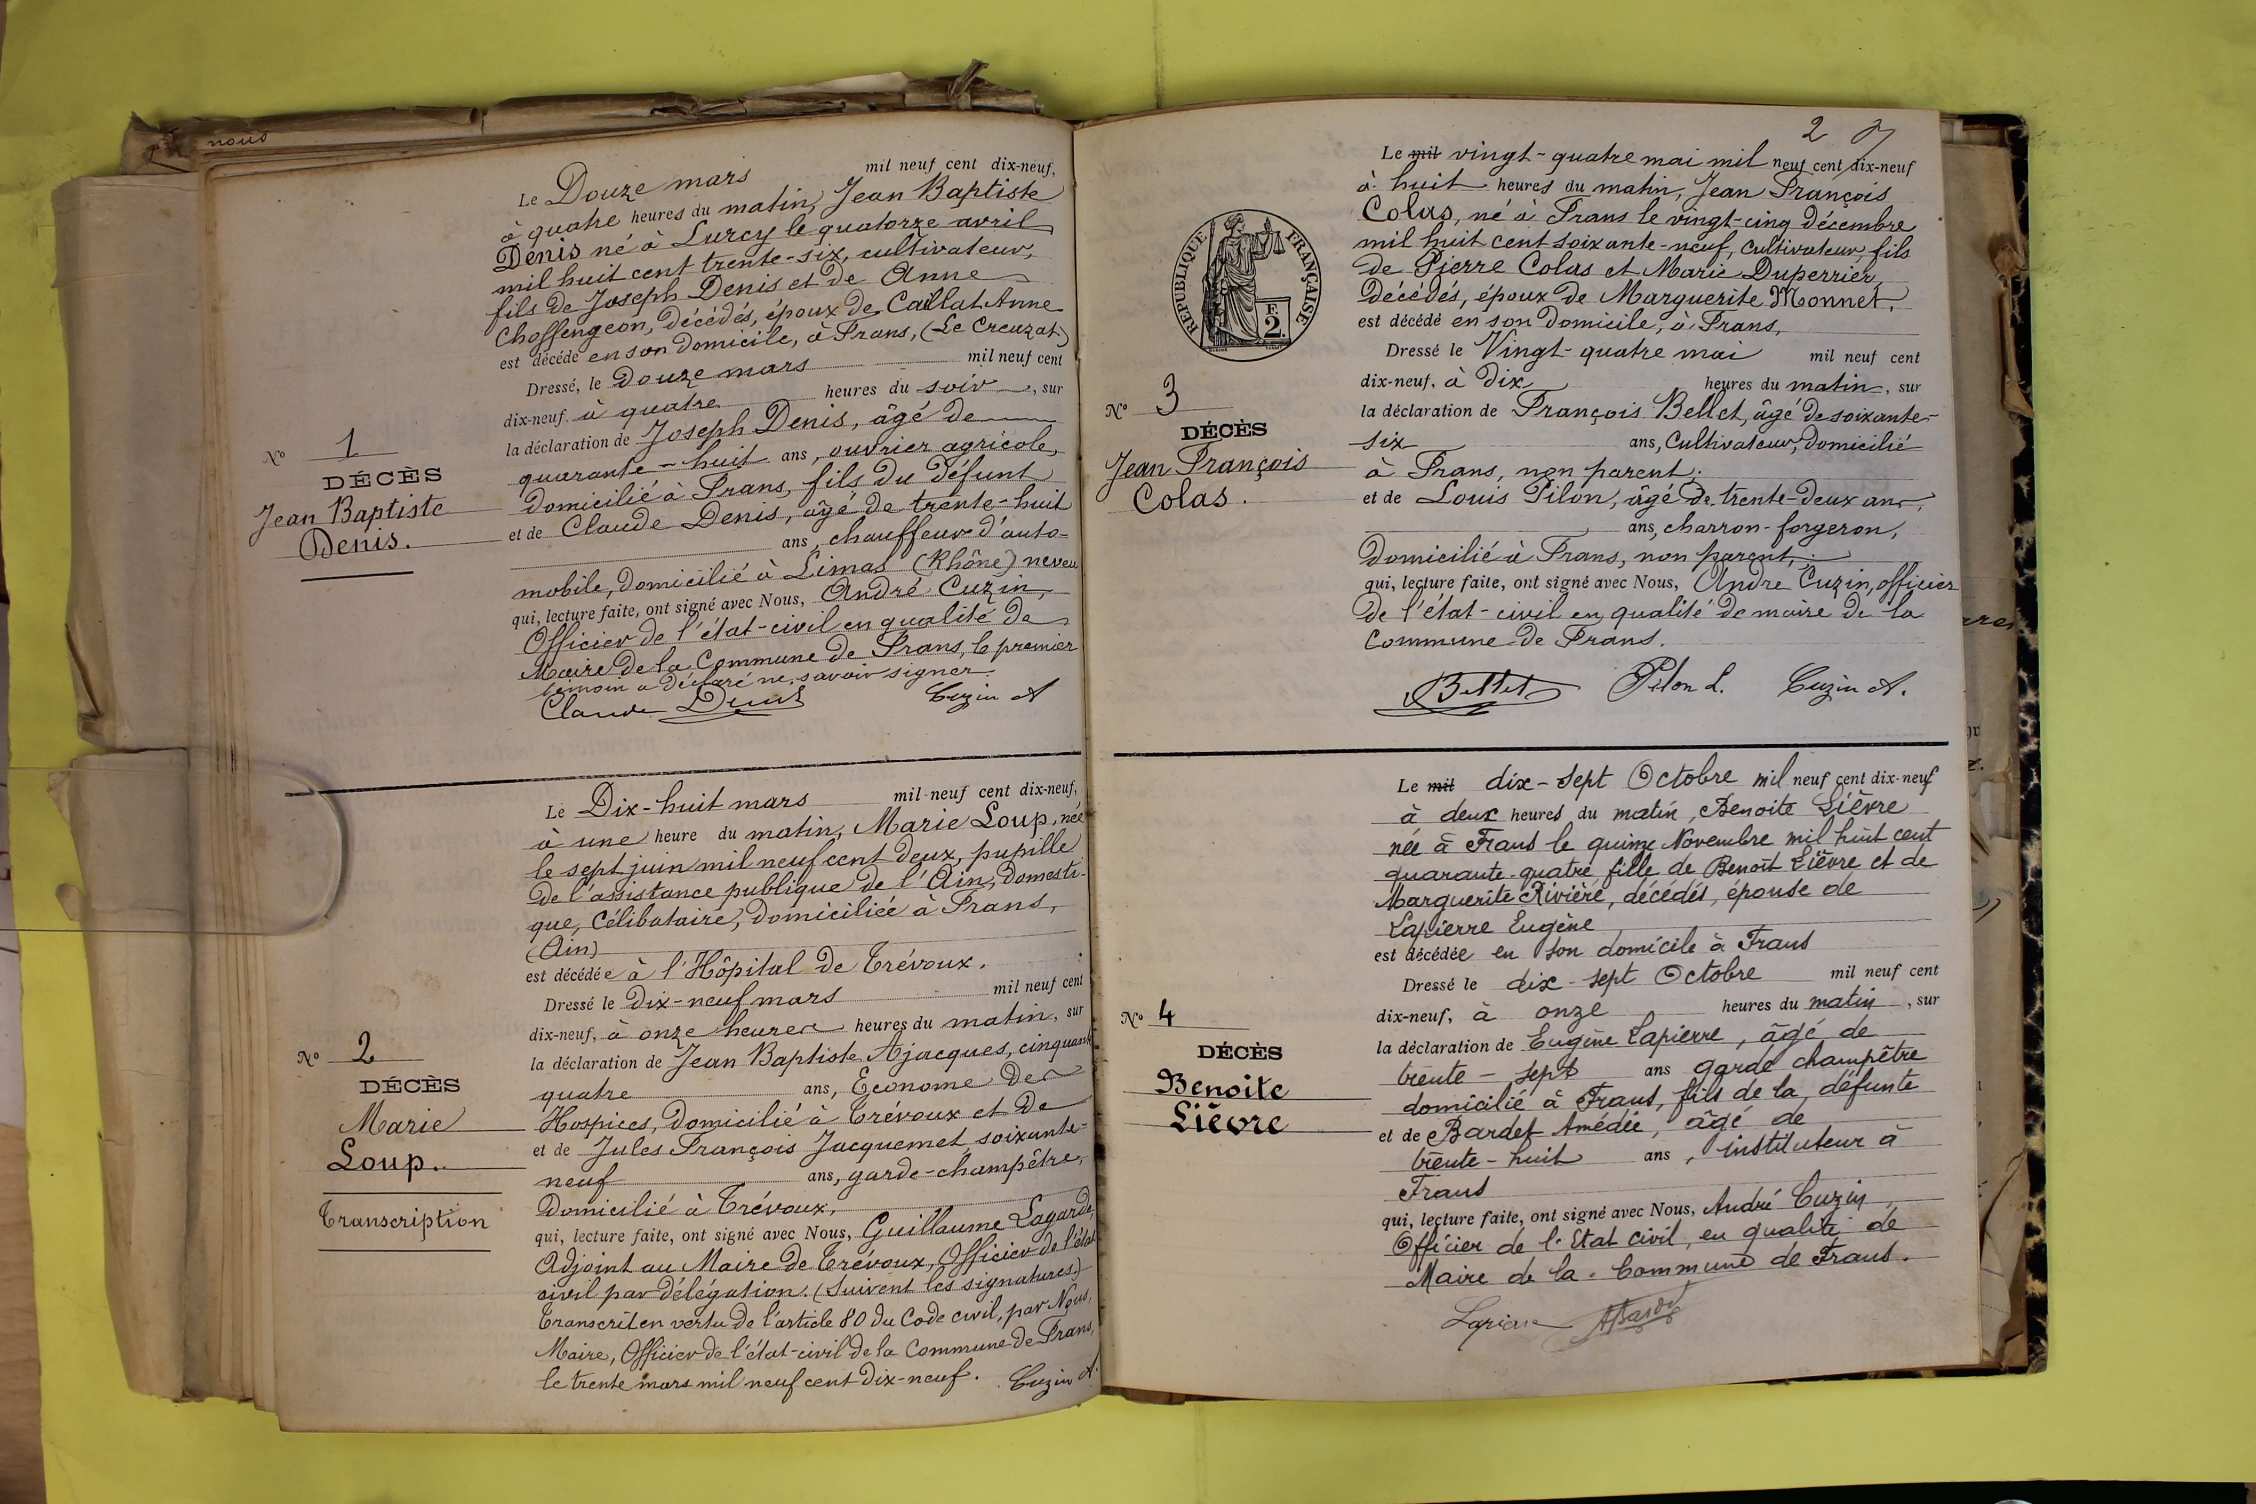 nous
Le Douze mars mil neuf cent dix-neuf,
à quatre heures du matin, Jean Baptiste
Denis né à Lurcy le quatorze avril
mil huit cent trente-six, cultivateur,
fils de Joseph Denis et de Anne
Choffengeon, décédés, époux de Caillat Anne
est décédé en son domicile, à Frans, (Le Creuzat)
Dressé, le douze mars mil neuf cent
dix-neuf, à quatre heures du soir, sur
la déclaration de Joseph Denis, âgé de
quarante-huit ans, ouvrier agricole,
domicilié à Frans, fils du défunt
et de Claude Denis, âgé de trente-huit
ans, chauffeur d'auto-
mobile, domicilié à Limas (Rhône) neveu
qui, lecture faite, ont signé avec Nous, André Cuzin,
Officier de l'état-civil en qualité de
Maire de la Commune de Frans, le premier
témoin a déclaré ne savoir signer.
Claude Denis Cuzin A
N° 1
DÉCÈS
Jean Baptiste
Denis.
Le Dix-huit mars mil neuf cent dix-neuf,
à une heure du matin, Marie Loup, née
le sept juin mil neuf cent deux, pupille
de l'assistance publique de l'Ain, domesti-
que, célibataire, domiciliée à Frans,
(Ain)
est décédée à l'Hôpital de Trévoux.
Dressé le dix-neuf mars mil neuf cent
dix-neuf, à onze heures heures du matin, sur
la déclaration de Jean Baptiste Ajacques, cinquante
quatre ans, Econome des
Hospices, domicilié à Trévoux et de
et de Jules François Jacquemet, soixante-
neuf ans, garde-champêtre,
domicilié à Trévoux,
qui, lecture faite, ont signé avec Nous, Guillaume Lagarde,
Adjoint au Maire de Trévoux, Officier de l'état
civil par délégation. (Suivent les signatures.)
Transcrit en vertu de l'article 80 du Code civil, par Nous,
Maire, Officier de l'état-civil de la Commune de Frans,
le trente mars mil neuf cent dix-neuf. Cuzin A.
N° 2
DÉCÈS
Marie
Loup.
Transcription
2
Le mil vingt-quatre mai mil neuf cent dix-neuf
à huit heures du matin, Jean François
Colas, né à Frans le vingt-cinq décembre
mil huit cent soixante-neuf, cultivateur, fils
de Pierre Colas et Marie Duperrier,
décédés, époux de Marguerite Monnet,
est décédé en son domicile, à Frans,
Dressé le Vingt-quatre mai mil neuf cent
dix-neuf, à dix heures du matin, sur
la déclaration de François Bellet, âgé de soixante-
six ans, Cultivateur, domicilié
à Frans, non parent.
et de Louis Pilon, âgé de trente-deux ans,
ans, charron-forgeron,
domicilié à Frans, non parent,
qui, lecture faite, ont signé avec Nous, André Cuzin, officier
de l'état-civil en qualité de maire de la
Commune de Frans.
Bellet Pilon L. Cuzin A.
RÉPUBLIQUE FRANÇAISE
F.
2.
N° 3
DÉCÈS
Jean François
Colas.
Le mil dix-sept Octobre mil neuf cent dix-neuf
à deux heures du matin, Benoite Lièvre
née à Frans le quinze Novembre mil huit cent
quarante-quatre fille de Benoît Lièvre et de
Marguerite Rivière, décédés, épouse de
Lapierre Eugène
est décédée en son domicile à Frans
Dressé le dix-sept Octobre mil neuf cent
dix-neuf, à onze heures du matin, sur
la déclaration de Eugène Lapierre, âgé de
trente-sept ans garde champêtre
domicilié à Frans, fils de la défunte
et de Bardet Amédée, âgé de
trente-huit ans, instituteur à
Frans
qui, lecture faite, ont signé avec Nous, André Cuzin,
Officier de l'Etat civil, en qualité de
Maire de la Commune de Frans.
Lapierre
N° 4
DÉCÈS
Benoite
Lièvre